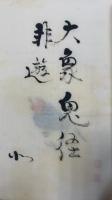 大象兔径
非遊